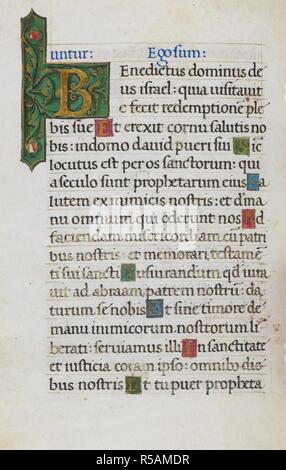 luntur: Ego sum:
Benedictus dominus de
us israel: quia uisitauit
e fecit redemptionẽ ple
bis sue Et erexit cornu salutis no
bis: in domo dauid pueri sui Sic
locutus est per os sanctorum: qui
a seculo sunt prophetarum eius Sa
lutem ex inimicis nostris: et de ma
nu omnium qui oderunt nos Ad
faciendam misericordiam cũ patri
bus nostris: et memorari testamẽ
ti sui sancti Iusiurandum qd̃ iura
uit ad abraam patrem nostrũ: da
turum se nobis Vt sine timore de
manu inimicorum nostrorum li
berati: seruiamus illi In sanctitate
et iusticia coram ipso: omnibus die
bus nostris Et tu puer propheta
alamy
www.alamy.com
R5AMDR